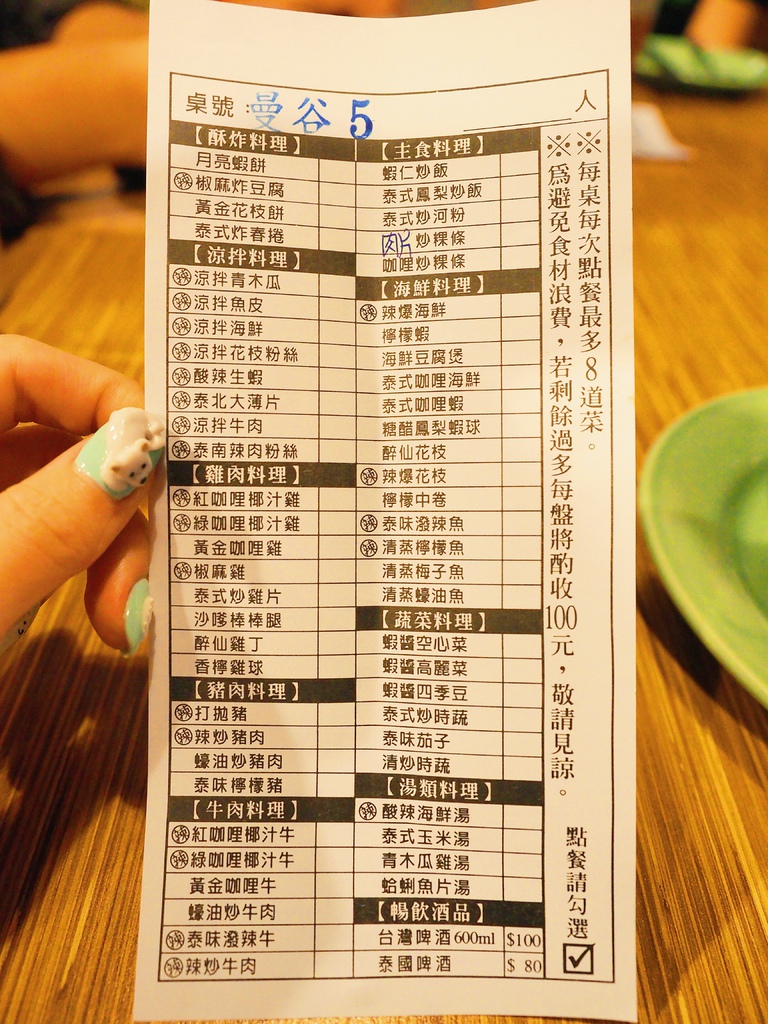 桌號:曼谷 5 人
【酥炸料理】
月亮蝦餅
辣 椒麻炸豆腐
黃金花枝餅
泰式炸春捲
【涼拌料理】
辣 涼拌青木瓜
辣 涼拌魚皮
辣 涼拌海鮮
辣 涼拌花枝粉絲
辣 酸辣生蝦
辣 泰北大薄片
辣 涼拌牛肉
辣 泰南辣肉粉絲
【雞肉料理】
辣 紅咖哩椰汁雞
辣 綠咖哩椰汁雞
黃金咖哩雞
辣 椒麻雞
泰式炒雞片
沙嗲棒棒腿
醉仙雞丁
香檸雞球
【豬肉料理】
辣 打拋豬
辣 辣炒豬肉
蠔油炒豬肉
泰味檸檬豬
【牛肉料理】
辣 紅咖哩椰汁牛
辣 綠咖哩椰汁牛
黃金咖哩牛
蠔油炒牛肉
辣 泰味潑辣牛
辣 辣炒牛肉
【主食料理】
蝦仁炒飯
泰式鳳梨炒飯
泰式炒河粉
肉片炒粿條
咖哩炒粿條
【海鮮料理】
辣 辣爆海鮮
檸檬蝦
海鮮豆腐煲
泰式咖哩海鮮
泰式咖哩蝦
糖醋鳳梨蝦球
醉仙花枝
辣 辣爆花枝
檸檬中卷
辣 泰味潑辣魚
辣 清蒸檸檬魚
清蒸梅子魚
清蒸蠔油魚
【蔬菜料理】
蝦醬空心菜
蝦醬高麗菜
蝦醬四季豆
泰式炒時蔬
泰味茄子
清炒時蔬
【湯類料理】
辣 酸辣海鮮湯
泰式玉米湯
青木瓜雞湯
蛤蜊魚片湯
【暢飲酒品】
台灣啤酒600ml $100
泰國啤酒 $ 80
※每桌每次點餐最多8道菜。
※為避免食材浪費,若剩餘過多每盤將酌收100元,敬請見諒。
點餐請勾選☑